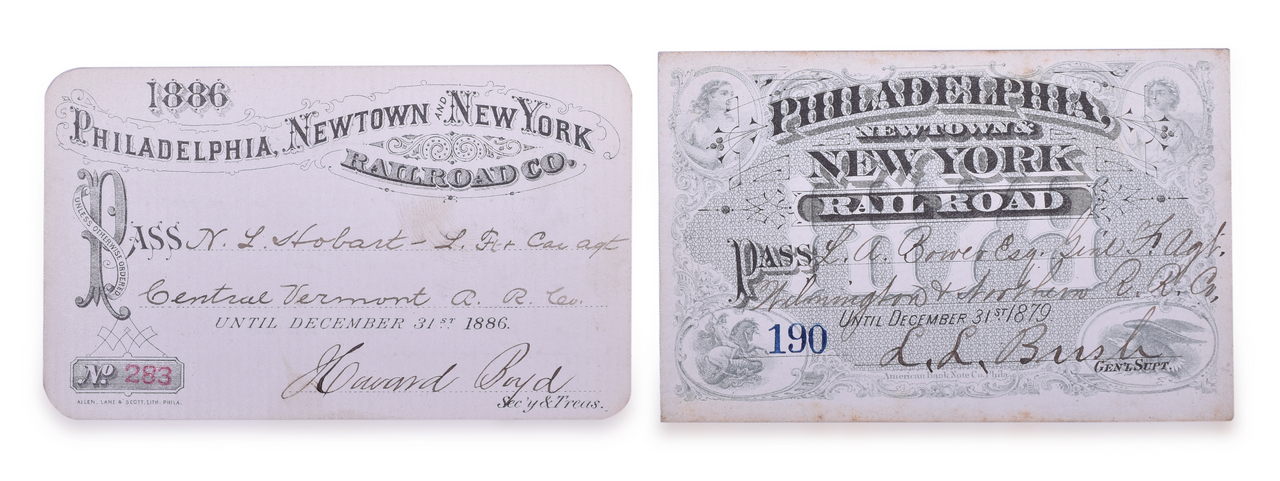 1886
PHILADELPHIA, NEWTOWN AND NEW YORK
RAILROAD CO.
PASS N. L. Hobart - L. Ft & Car agt
UNLESS OTHERWISE ORDERED
Central Vermont R. R. Co.
UNTIL DECEMBER 31ST 1886.
No 283
Howard Boyd
Sec'y & Treas.
ALLEN, LANE & SCOTT, LITH. PHILA.
PHILADELPHIA,
NEWTOWN &
NEW YORK
RAIL ROAD
PASS L. A. Bower Esq. Genl F. Agt.
Wilmington & Northern R. R. Co.
UNTIL DECEMBER 31ST 1879
190
L. L. Bush
GEN'L SUPT.
American Bank Note Co. Phila.